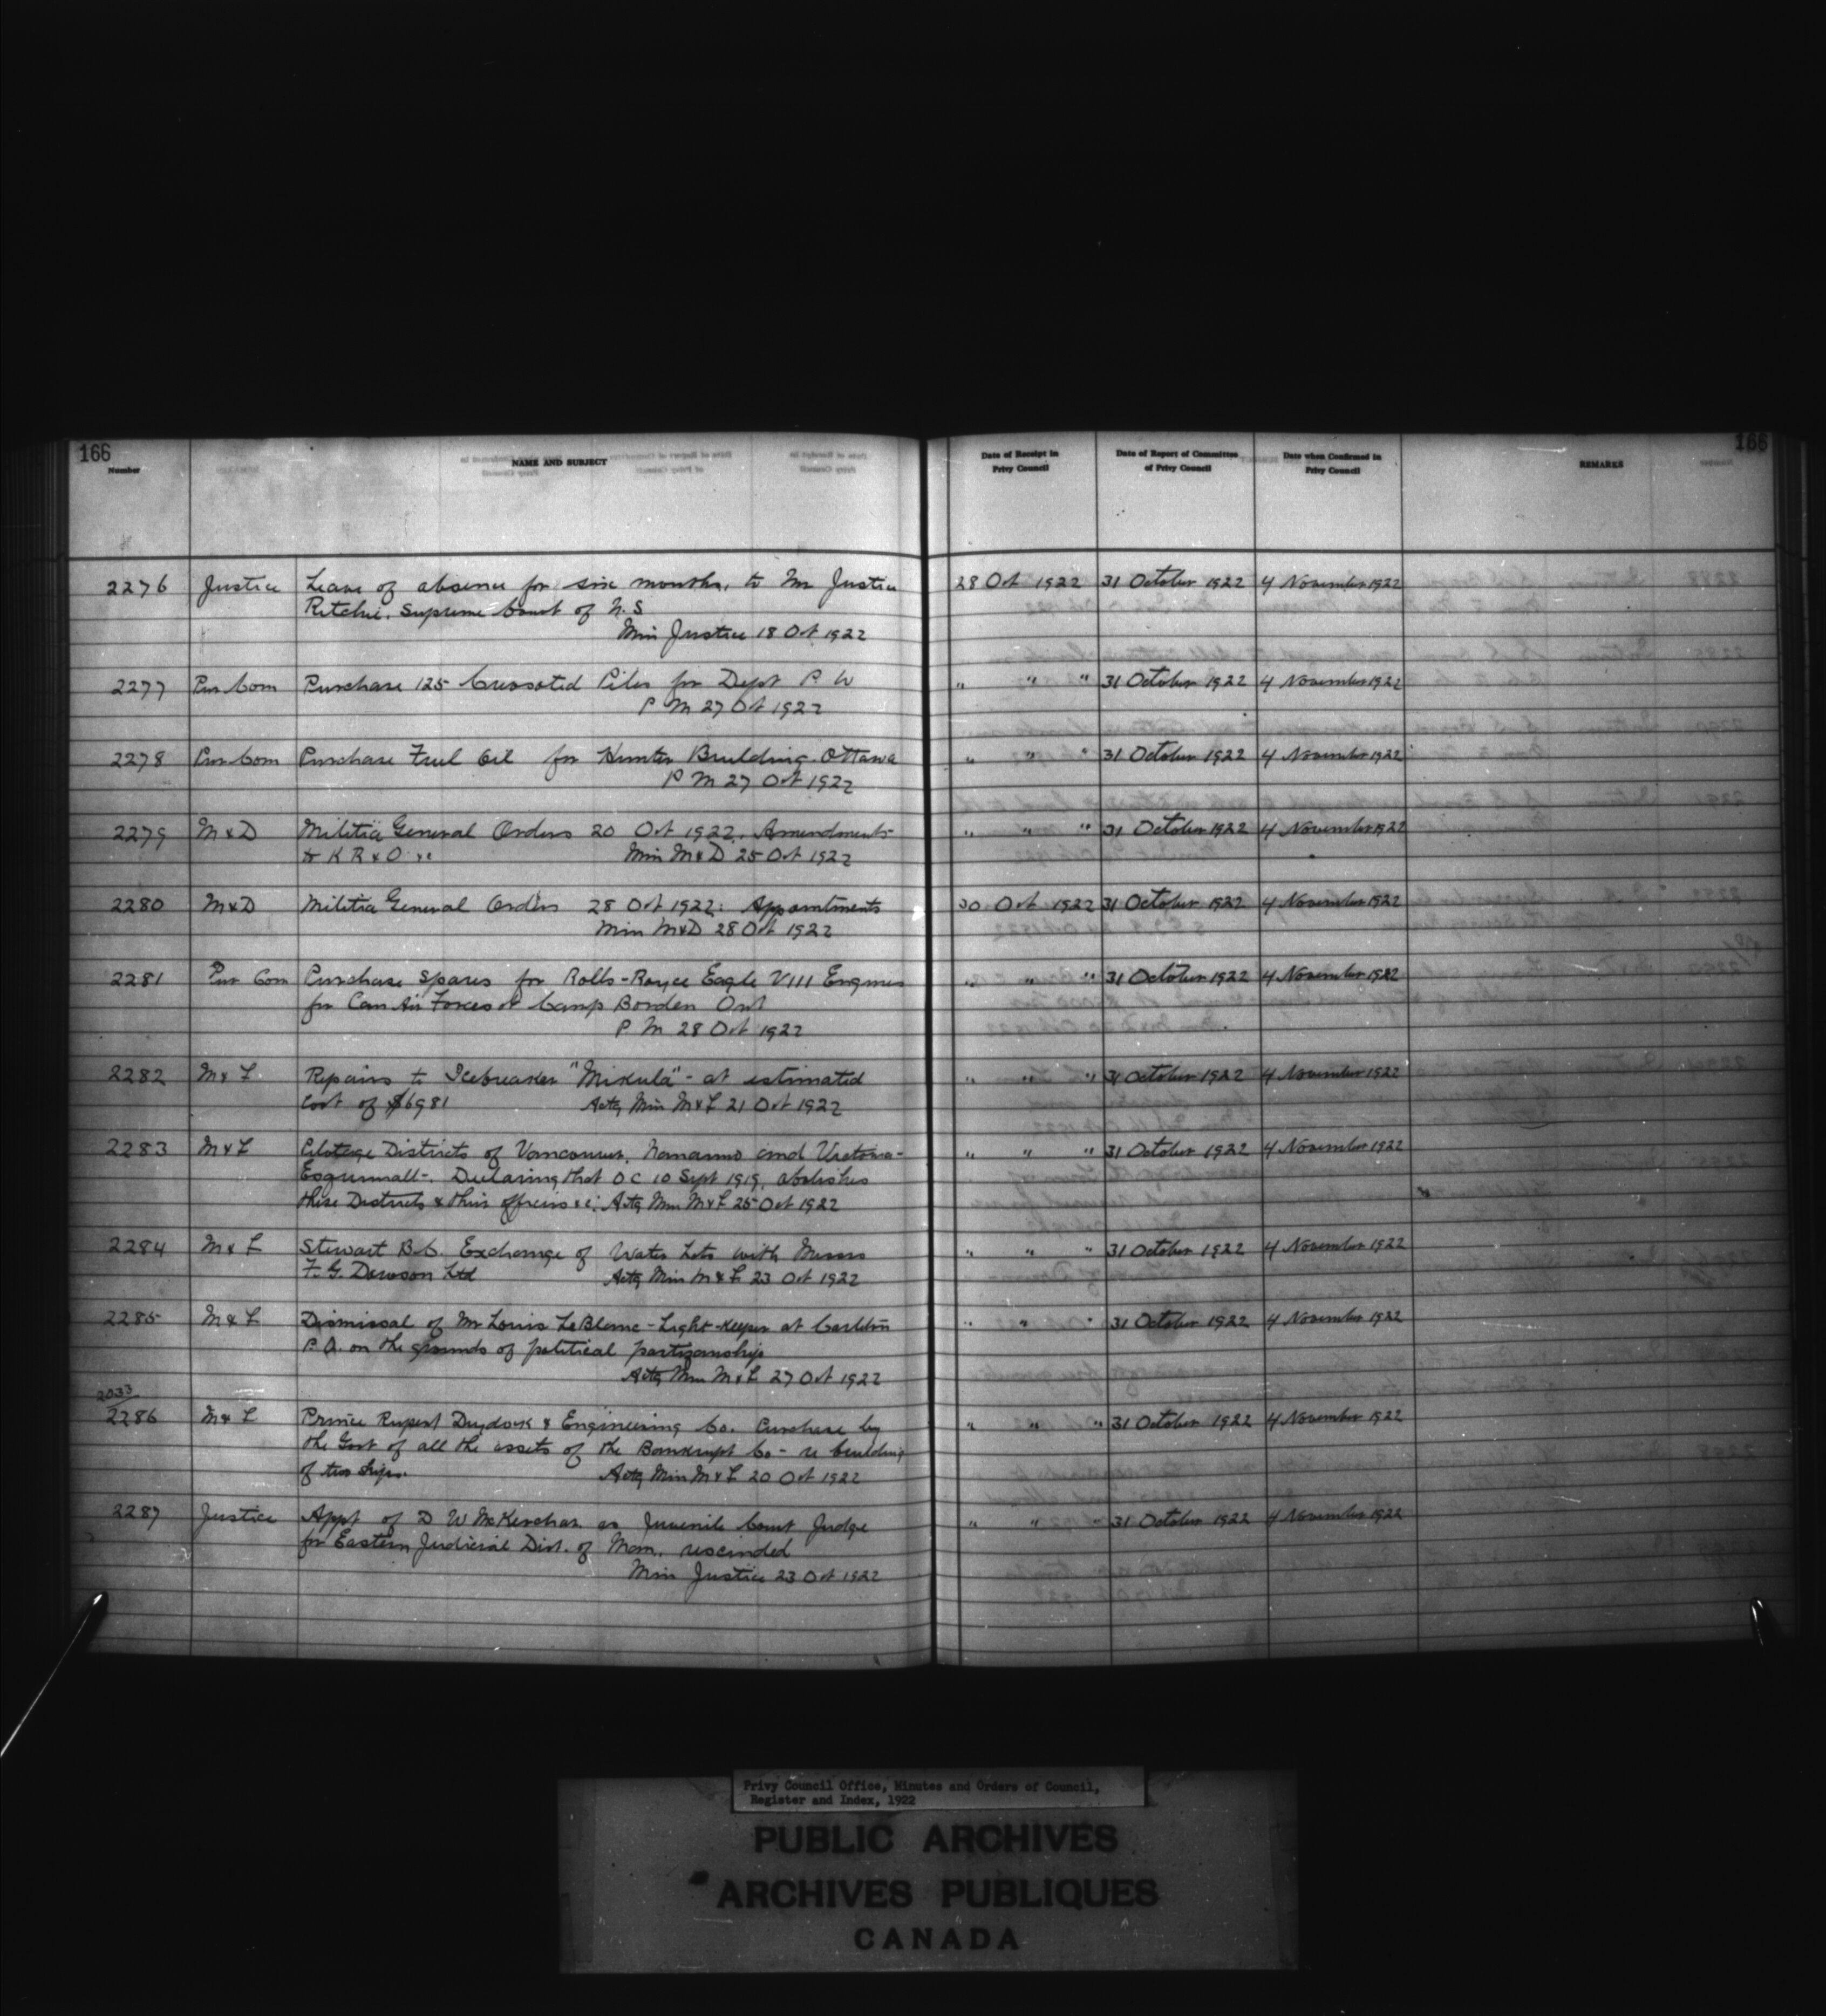 166
166
Number
NAME AND SUBJECT
Date of Receipt in Privy Council
Date of Report of Committee of Privy Council
Date when Confirmed in Privy Council
REMARKS
2276 Justice Leave of absence for six months, to Mr Justice 28 Oct 1922 31 October 1922 4 November 1922
Ritchie, Supreme Court of N.S
Min Justice 18 Oct 1922
2277 Pur Com Purchase 125 Creosoted Piles for Dept P. W " " " 31 October 1922 4 November 1922
P M 27 Oct 1922
2278 Pur Com Purchase Fuel Oil for Hunter Building. Ottawa " " " 31 October 1922 4 November 1922
P M 27 Oct 1922
2279 M & D Militia General Orders 20 Oct 1922. Amendments " " " 31 October 1922 4 November 1922
to K R & O &c Min M & D 25 Oct 1922
2280 M & D Militia General Orders 28 Oct 1922: Appointments 30 Oct 1922 31 October 1922 4 November 1922
Min M & D 28 Oct 1922
2281 Pur Com Purchase Spares for Rolls-Royce Eagle VIII Engines " " " 31 October 1922 4 November 1922
for Can Air Forces at Camp Borden Ont
P. M 28 Oct 1922
2282 M & F Repairs to Icebreaker "Mikula" - at estimated " " " 31 October 1922 4 November 1922
Cost of $6981 Actg Min M & F 21 Oct 1922
2283 M & F Pilotage Districts of Vancouver, Nanaimo and Victoria- " " " 31 October 1922 4 November 1922
Esquimalt-. Declaring that O C 10 Sept 1919, abolishes
these Districts & their officers &c: Actg Min M & F 25 Oct 1922
2284 M & F Stewart B.C. Exchange of Water Lots with Messrs " " " 31 October 1922 4 November 1922
F. G. Dawson Ltd Actg Min M & F 23 Oct 1922
2285 M & F Dismissal of Mr Louis LeBlanc - Light-Keeper at Carleton " " " 31 October 1922 4 November 1922
P.Q. on the grounds of political partizanship
Actg Min M & F 27 Oct 1922
2033
2286 M & F Prince Rupert Drydock & Engineering Co. Purchase by " " " 31 October 1922 4 November 1922
the Govt of all the assets of the Bankrupt Co - re building
of two ships. Actg Min M & F 20 Oct 1922
2287 Justice Appt of D W McKerchar as Juvenile Court Judge " " " 31 October 1922 4 November 1922
for Eastern Judicial Dist. of Man. rescinded
Min Justice 23 Oct 1922
Privy Council Office, Minutes and Orders of Council,
Register and Index, 1922
PUBLIC ARCHIVES
ARCHIVES PUBLIQUES
CANADA